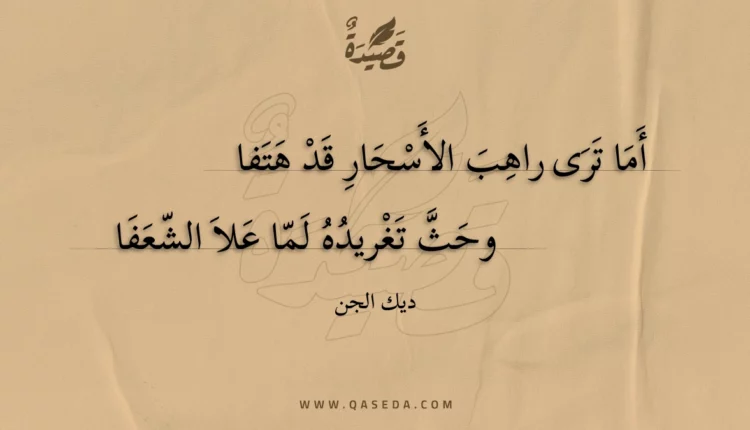 قَصِيدَةٌ
أَمَا تَرَى راهِبَ الأَسْحَارِ قَدْ هَتَفا
وحَثَّ تَغْرِيدُهُ لَمّا عَلاَ الشّعَفَا
ديك الجن
WWW.QASEDA.COM